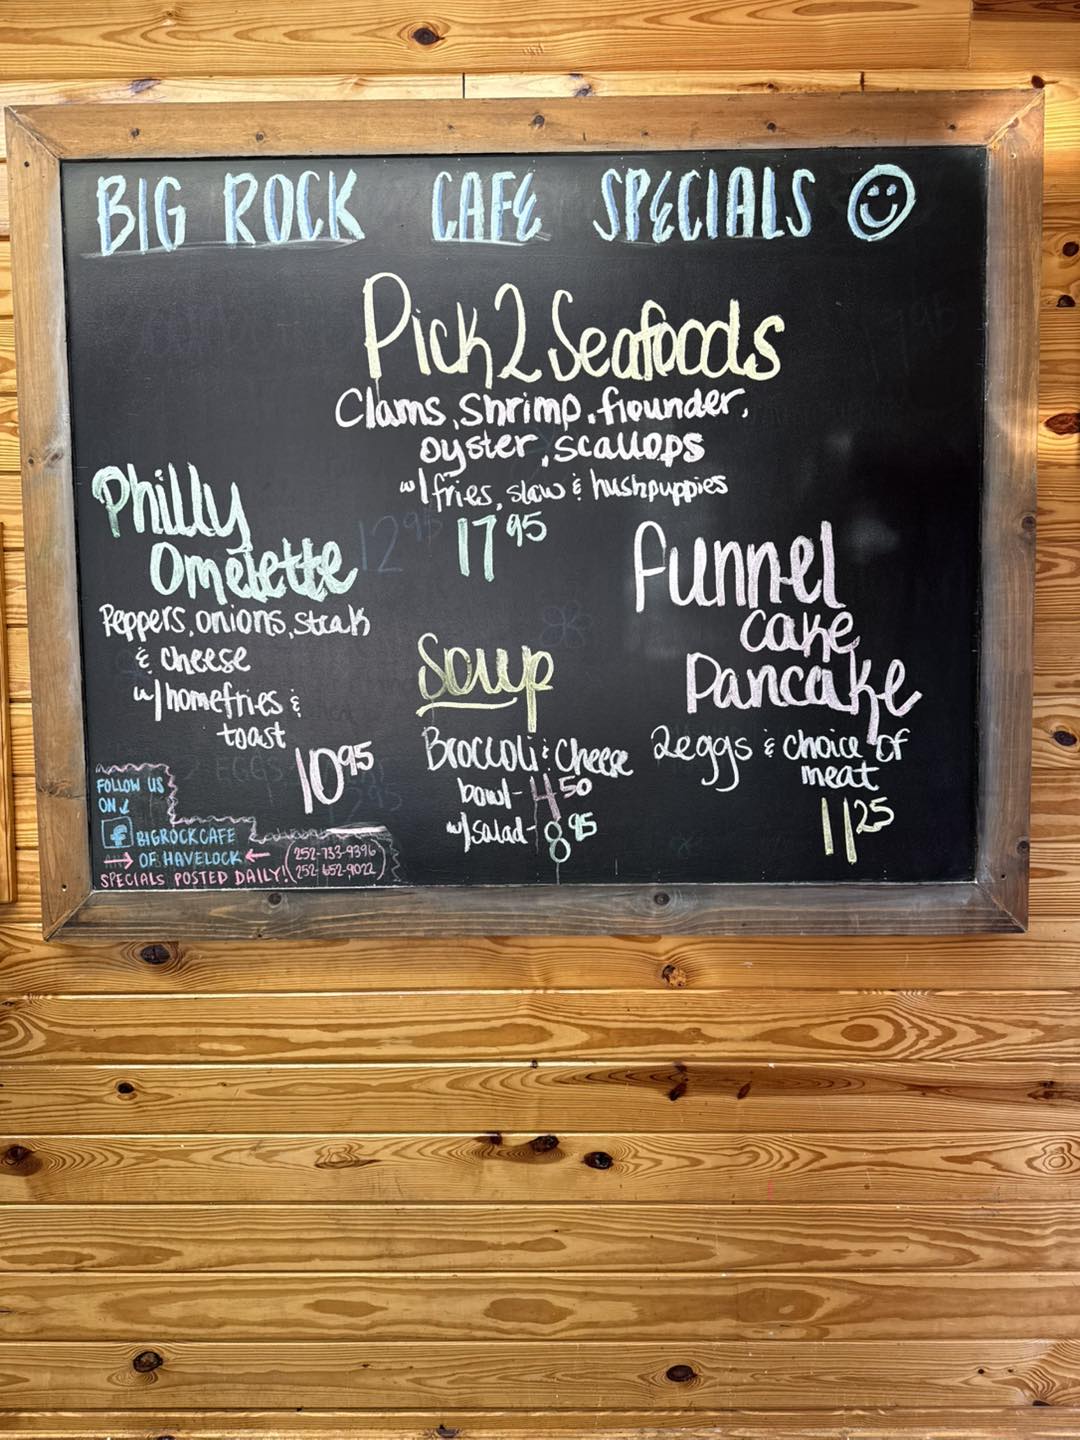 BIG ROCK CAFE SPECIALS
Pick 2 Seafoods
Clams, Shrimp, flounder,
oyster, scallops
w/ fries, slaw & hushpuppies
17 95
Philly
Omelette
Peppers, onions, steak
& cheese
w/ homefries &
toast
10 95
Soup
Broccoli & Cheese
bowl - 4 50
w/ salad - 8 95
Funnel
Cake
Pancake
2 eggs & choice of
meat
11 25
FOLLOW US
ON
f BIGROCKCAFE
OF HAVELOCK
SPECIALS POSTED DAILY!
252-733-9396
252-652-9022
12 95
2 EGGS